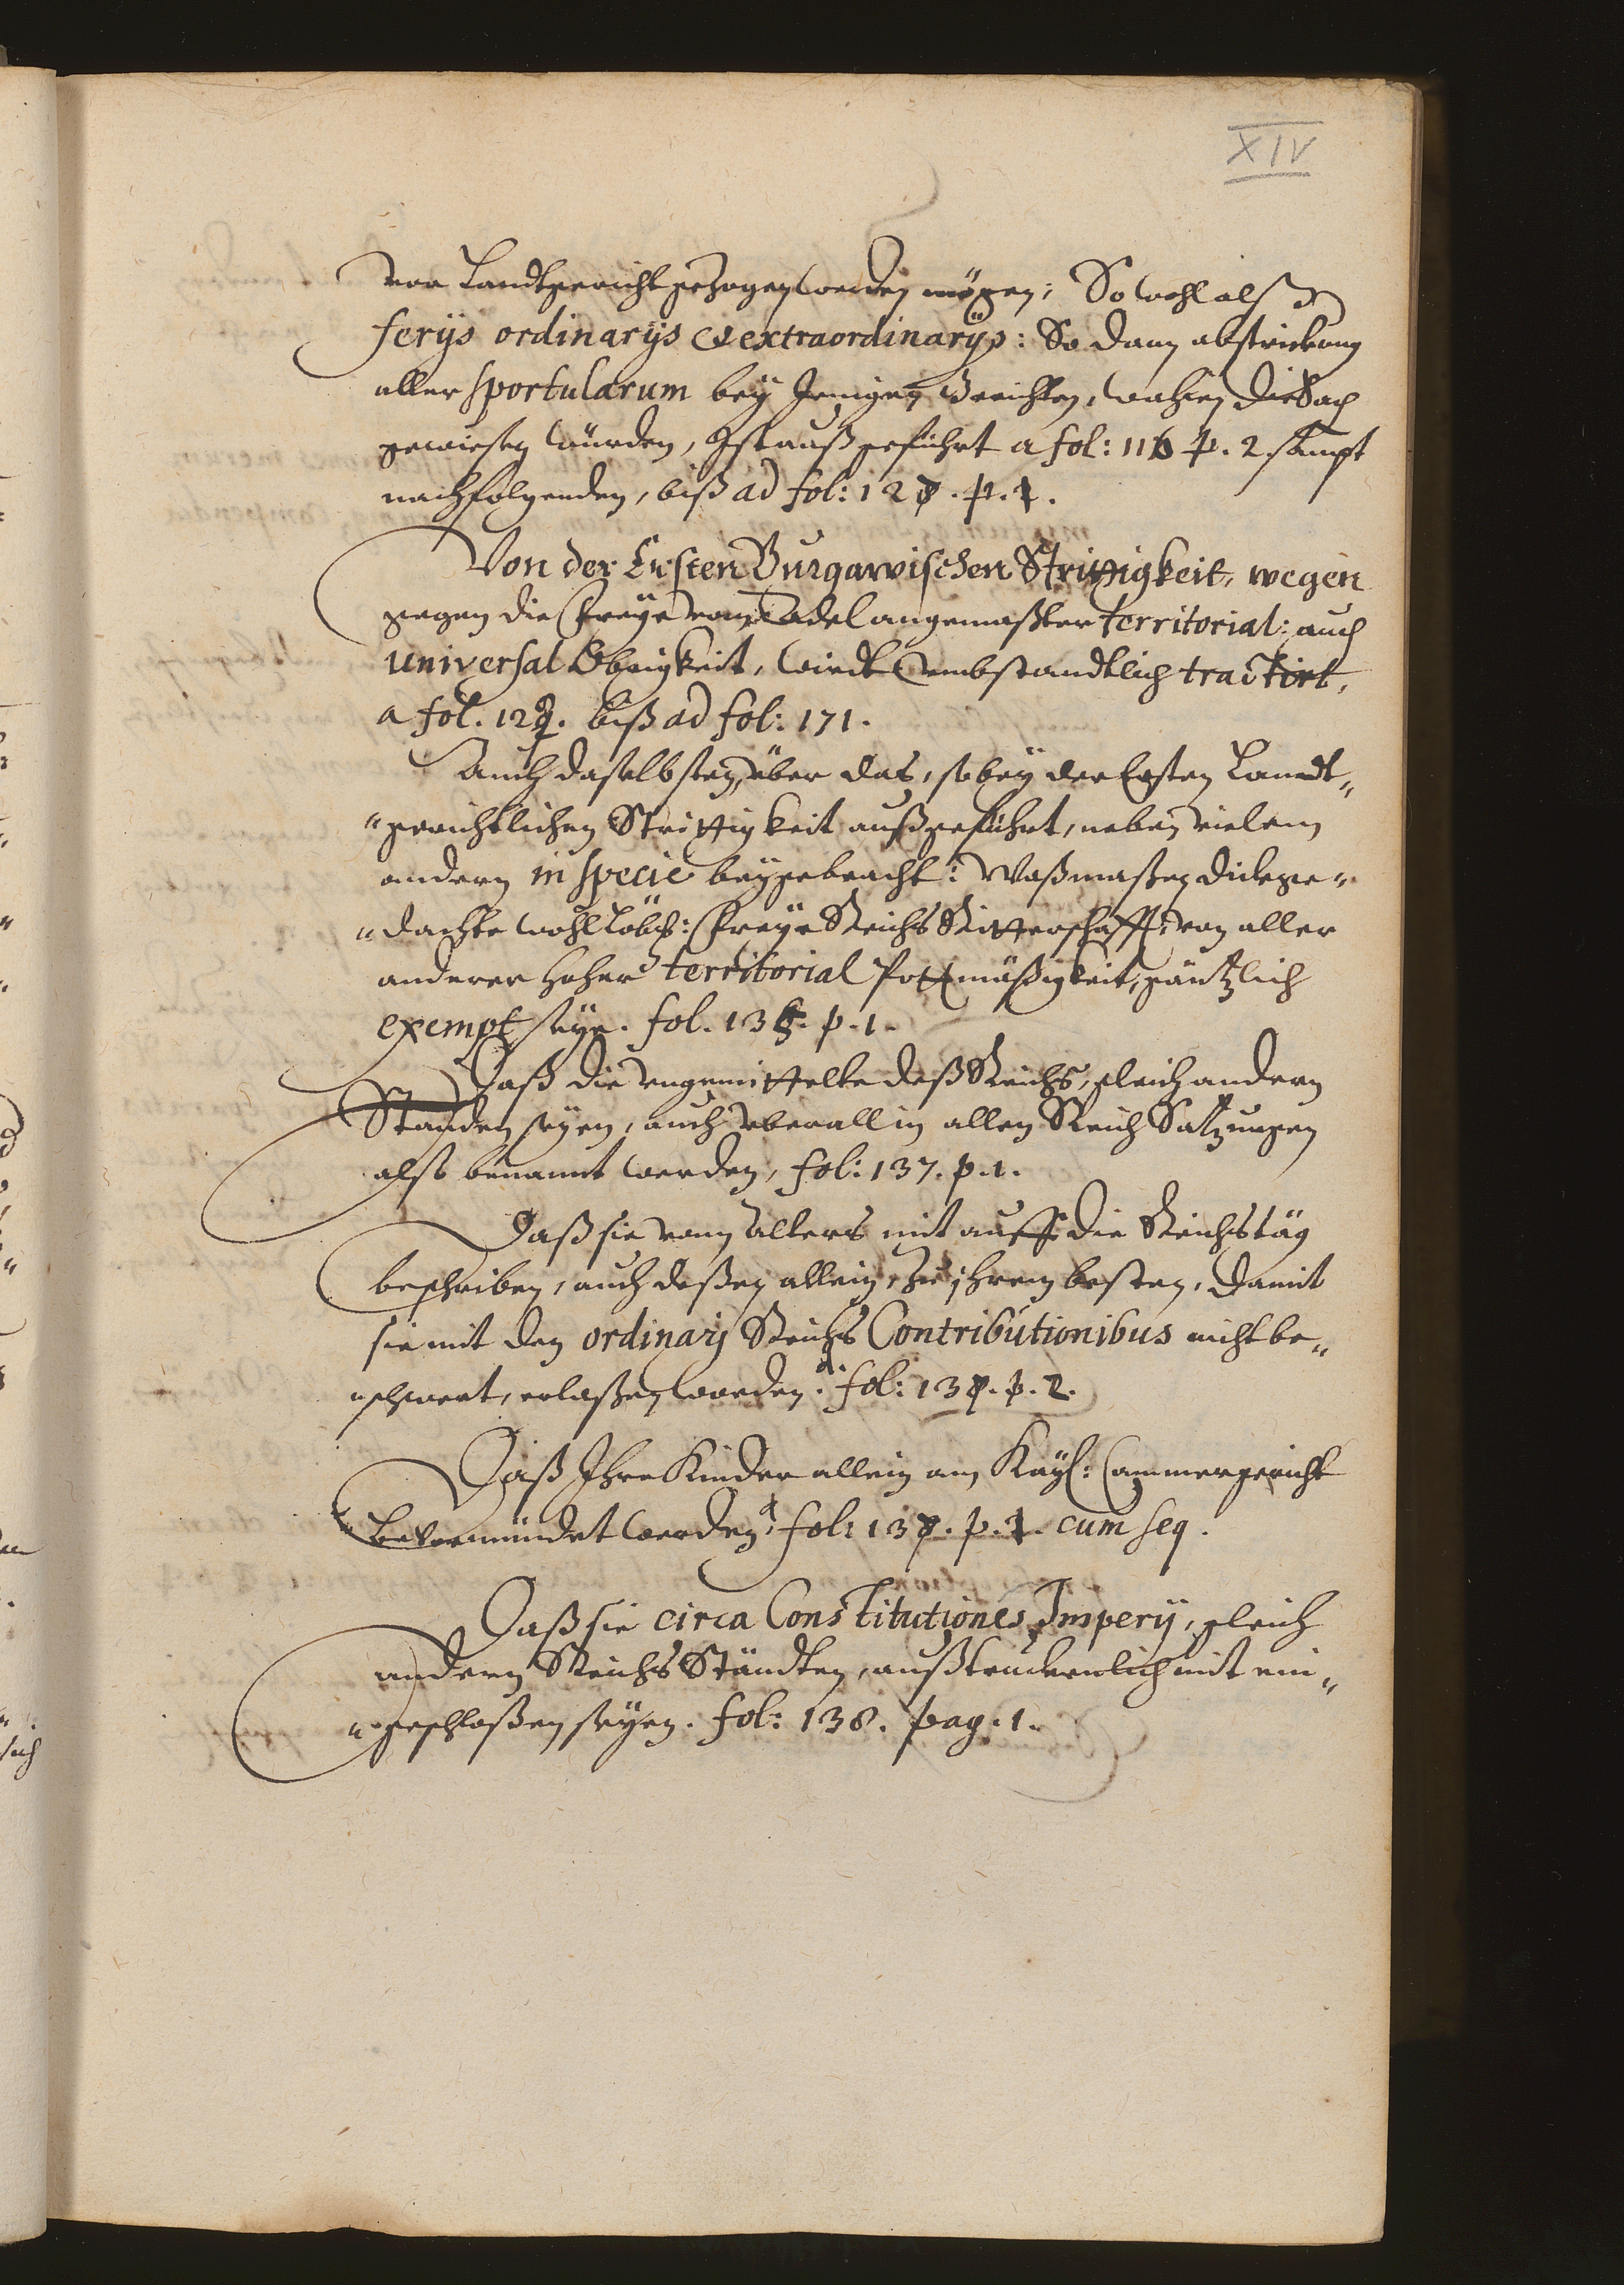 XIV
vor Landtgericht gezogen werden mögen; So wohl alß d
ferijs ordinarijs et extraordinarijs: So dann abstrickung
aller sportularum bey Jenigen Gerichten, wohin die Sach
gewiesen würden, Ist außgeführt a fol: 116 p. 2. sampt
nachfolgenden, biß ad fol: p. 1.
Von der Ersten Burgawischen Strittigkeit, wegen
gegen die Freye vom Adel angemaßter territorial: auch
universal Obrigkeit, wirdt umbstandtlich tractirt,
a fol. biß ad fol: 171.
Auch daselbsten, über das, so bey der Ersten Landt„
„gerichtlichen Strittigkeit außgeführt, neben vielem
andern in specie beygebracht: Waßmaßen dickge„
„dachte wohl Löbl: Freye Reichs Ritterschafft, von aller
anderer hoher territorial Pottmäßigkeit, gäntzlich
exempt seye. fol. p. 1.
Daß die ungemittelte deß Reichs, gleich andern
Standen seyen, auch überall in allen Reich Satzungen
also benannt werden, fol: 137. p. 1.
Daß sie vom Alters mit auff die Reichstäg
beschriben, auch deßen allein, zu ihrem besten, damit
sie mit den ordinarj Reichs Contributionibus nicht be„
„schwert, erlaßen worden. d. fol: p. 2.
Daß Ihre Kinder allein am Kayl: Cammergericht
bevormündet werden, d. fol: p. 1. cum seq.
Daß sie circa Constitutiones Imperij, gleich
andern Reichs Ständten, außtruckenlich mit ein„
„geschloßen seyen. fol: 138. pag. 1.